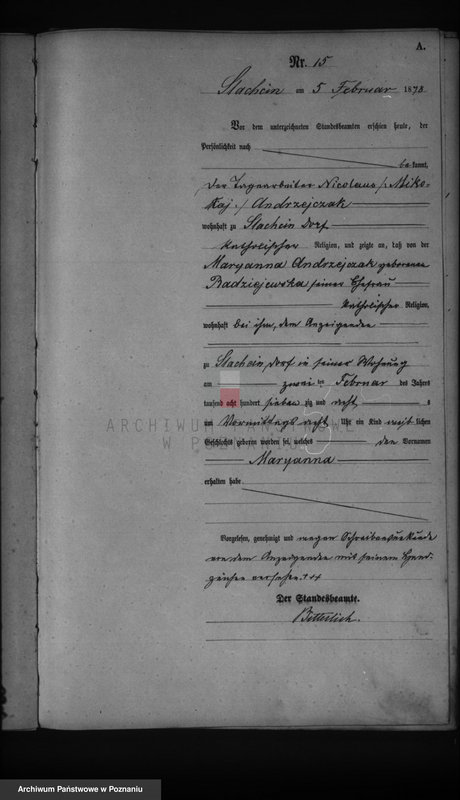 A.
Nr. 15
Stachein am 5 Februar 1878
Vor dem unterzeichneten Standesbeamten erschien heute, der
Persönlichkeit nach
bekannt,
der Tagearbeiter Nicolaus /: Miko-
łaj :/ Andrzejczak
wohnhaft zu Stachein Dorf
katholischer Religion, und zeigte an, daß von der
Maryanna Andrzejczak geborenen
Radziejewska seiner Ehefrau
katholischer Religion,
wohnhaft bei ihm, dem Anzeigenden
zu Stachein Dorf in seiner Wohnung
am zwei ten Februar des Jahres
tausend acht hundert sieben zig und acht
um Vormittags acht Uhr ein Kind weiblichen
Geschlechts geboren worden sei, welches den Vornamen
Maryanna
erhalten habe
Vorgelesen, genehmigt und wegen Schreibensunkunde
von dem Anzeigenden mit seinem Hand-
zeichen versehen. +++
Der Standesbeamte.
Bitterlich.
ARCHIWUM PAŃSTWOWE
W POZNANIU
Archiwum Państwowe w Poznaniu